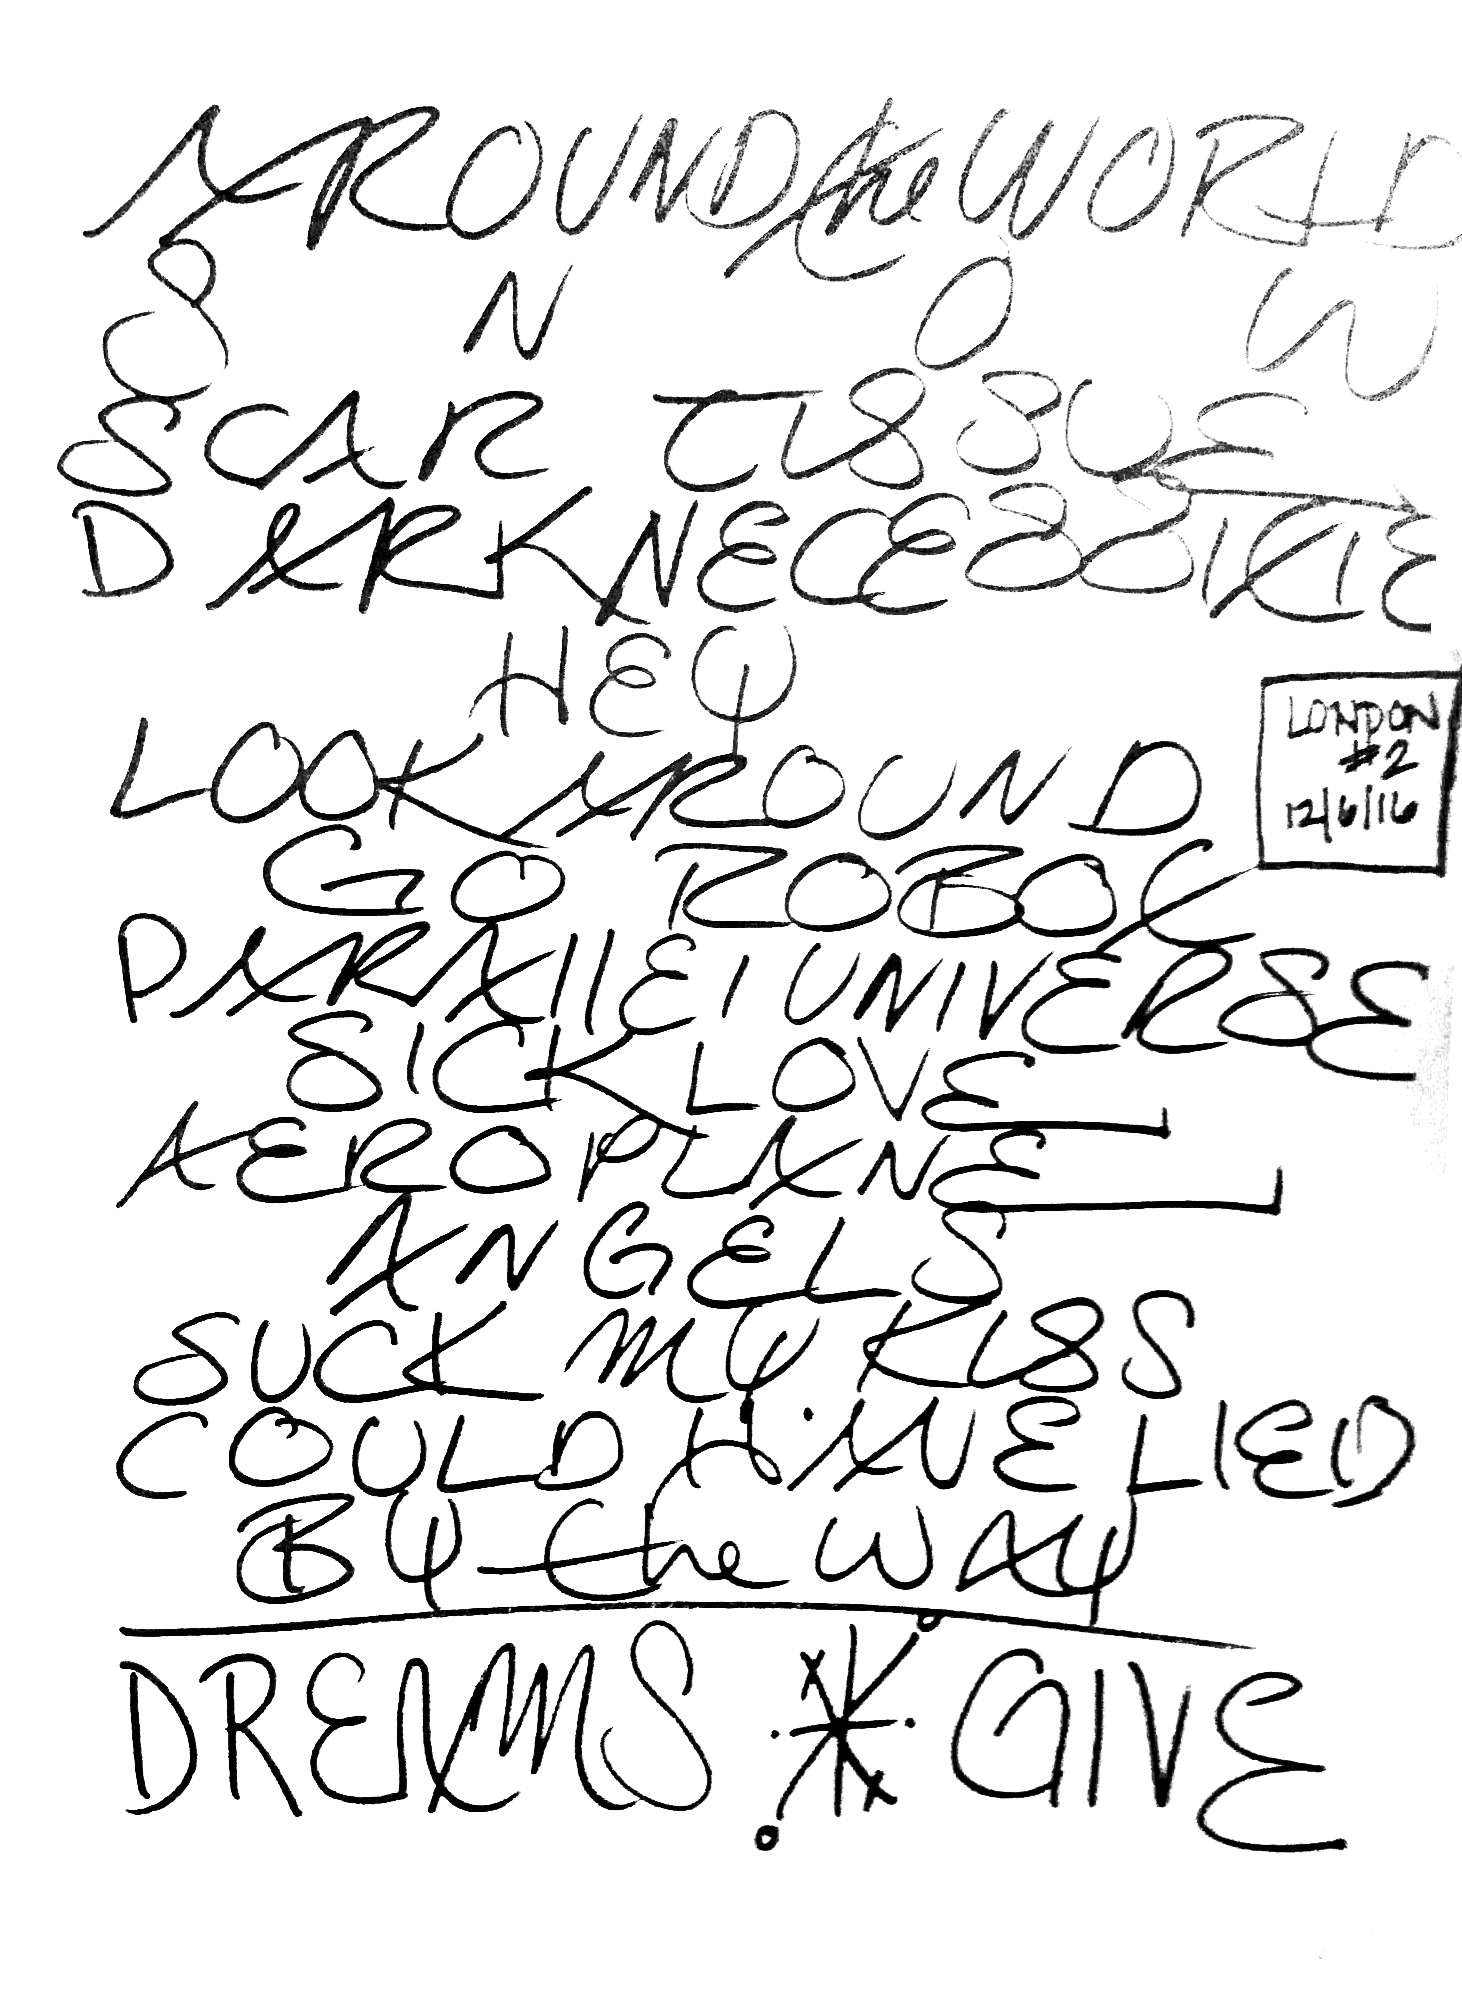 AROUND the WORLD
S N O W
SCAR TISSUE
DARK NECESSITIE
HEY
LOOK AROUND
GO ROBOT
PARALLEL UNIVERSE
SICK LOVE
AEROPLANE
ANGELS
SUCK MY KISS
COULD HAVE LIED
BY the WAY
DREAMS * GIVE
LONDON
#2
12/6/16